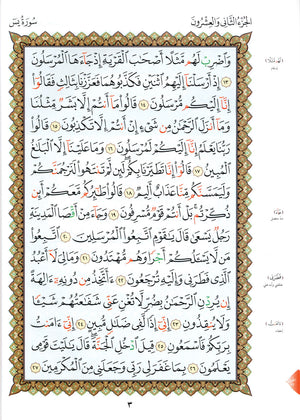 الجزء الثاني والعشرون
سورة يس
وَاضْرِبْ لَهُم مَّثَلًا أَصْحَابَ الْقَرْيَةِ إِذْ جَاءَهَا الْمُرْسَلُونَ
١٣ إِذْ أَرْسَلْنَا إِلَيْهِمُ اثْنَيْنِ فَكَذَّبُوهُمَا فَعَزَّزْنَا بِثَالِثٍ فَقَالُوا
إِنَّا إِلَيْكُم مُّرْسَلُونَ ١٤ قَالُوا مَا أَنتُمْ إِلَّا بَشَرٌ مِّثْلُنَا
وَمَا أَنزَلَ الرَّحْمَٰنُ مِن شَيْءٍ إِنْ أَنتُمْ إِلَّا تَكْذِبُونَ ١٥ قَالُوا
رَبُّنَا يَعْلَمُ إِنَّا إِلَيْكُمْ لَمُرْسَلُونَ ١٦ وَمَا عَلَيْنَا إِلَّا الْبَلَاغُ
الْمُبِينُ ١٧ قَالُوا إِنَّا تَطَيَّرْنَا بِكُمْ لَئِن لَّمْ تَنتَهُوا لَنَرْجُمَنَّكُمْ
وَلَيَمَسَّنَّكُم مِّنَّا عَذَابٌ أَلِيمٌ ١٨ قَالُوا طَائِرُكُم مَّعَكُمْ أَئِن
ذُكِّرْتُم بَلْ أَنتُمْ قَوْمٌ مُّسْرِفُونَ ١٩ وَجَاءَ مِنْ أَقْصَا الْمَدِينَةِ
رَجُلٌ يَسْعَىٰ قَالَ يَا قَوْمِ اتَّبِعُوا الْمُرْسَلِينَ ٢٠ اتَّبِعُوا
مَن لَّا يَسْأَلُكُمْ أَجْرًا وَهُم مُّهْتَدُونَ ٢١ وَمَا لِيَ لَا أَعْبُدُ
الَّذِي فَطَرَنِي وَإِلَيْهِ تُرْجَعُونَ ٢٢ أَأَتَّخِذُ مِن دُونِهِ آلِهَةً
إِن يُرِدْنِ الرَّحْمَٰنُ بِضُرٍّ لَّا تُغْنِ عَنِّي شَفَاعَتُهُمْ شَيْئًا
وَلَا يُنقِذُونِ ٢٣ إِنِّي إِذًا لَّفِي ضَلَالٍ مُّبِينٍ ٢٤ إِنِّي آمَنتُ
بِرَبِّكُمْ فَاسْمَعُونِ ٢٥ قِيلَ ادْخُلِ الْجَنَّةَ قَالَ يَا لَيْتَ قَوْمِي
يَعْلَمُونَ ٢٦ بِمَا غَفَرَ لِي رَبِّي وَجَعَلَنِي مِنَ الْمُكْرَمِينَ ٢٧
٣